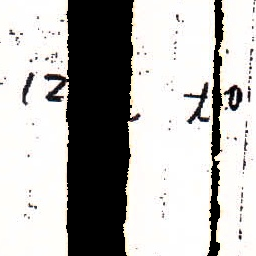 12 to